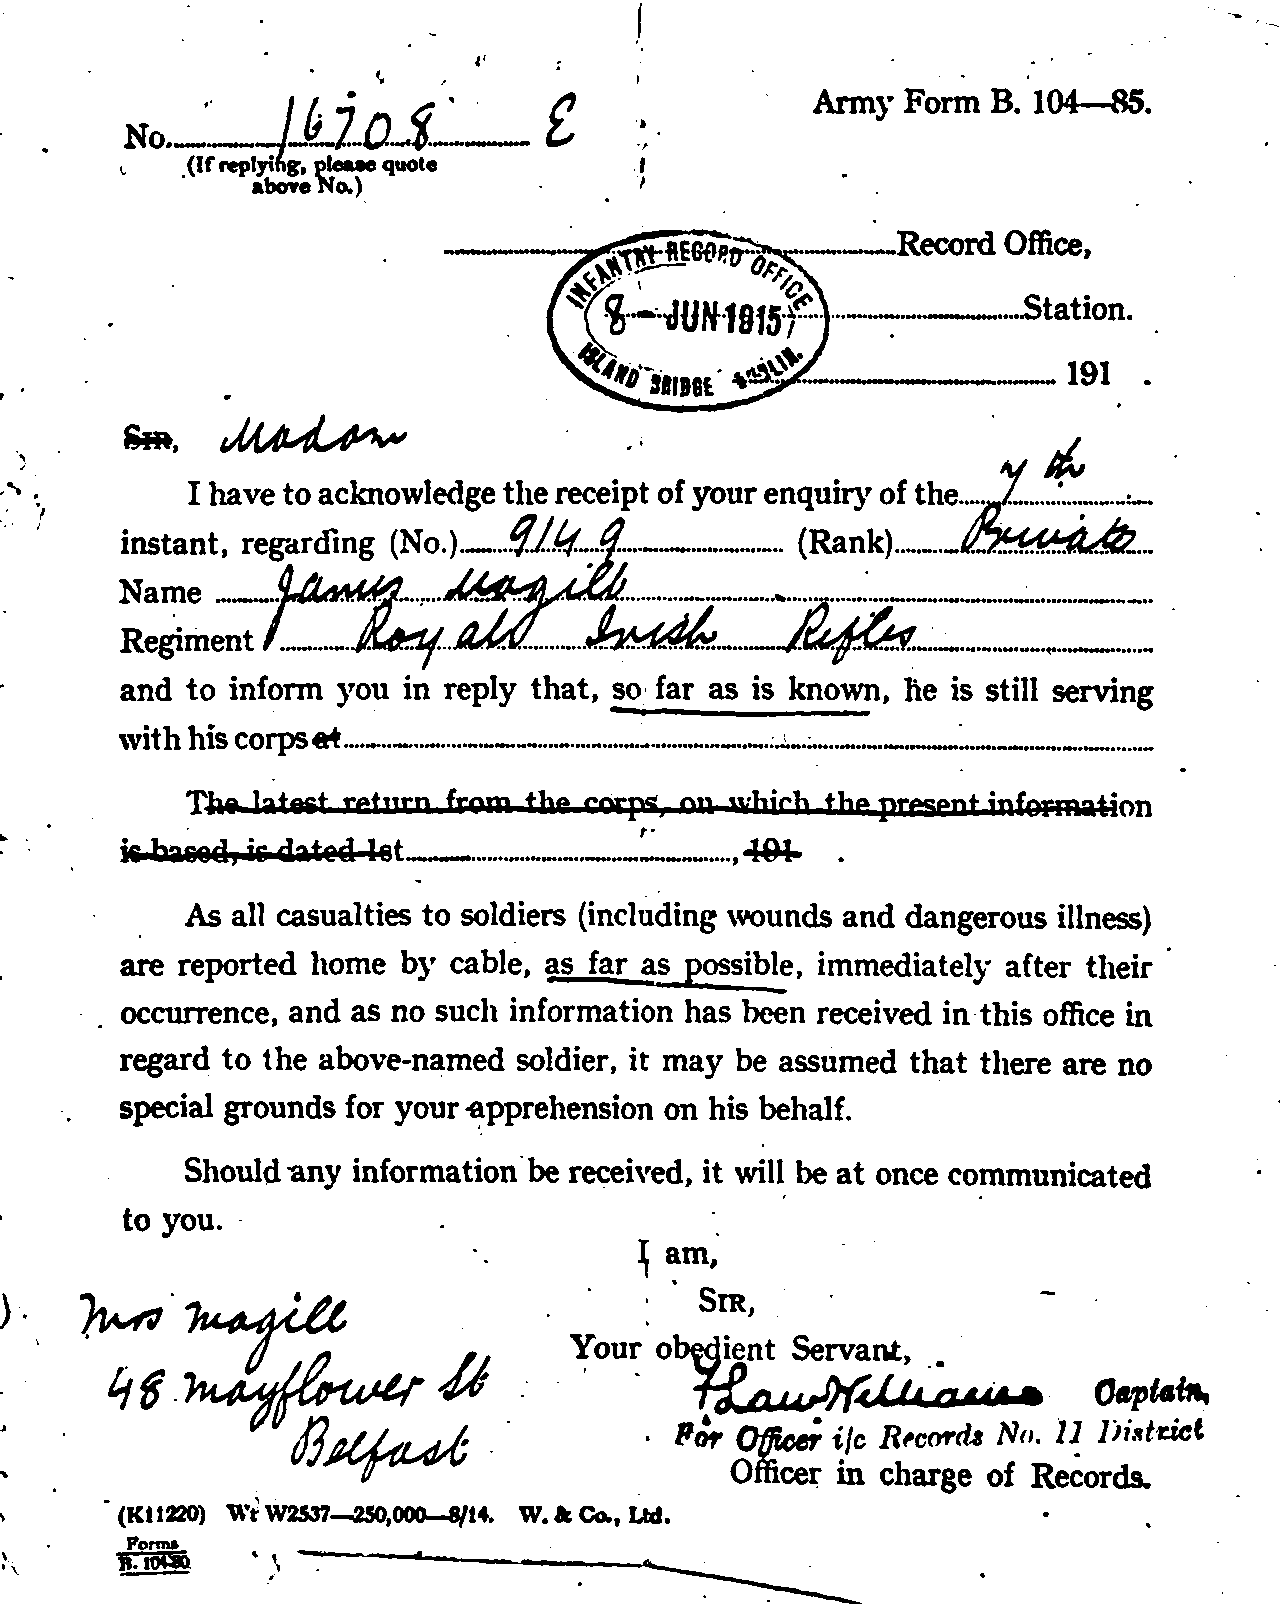 Army Form B. 104—85.
No. 16708 E
(If replying, please quote
above No.)
Record Office,
INFANTRY RECORD OFFICE
8 - JUN 1915
ISLAND BRIDGE DUBLIN.
Station.
191 .
Sir, Madam
I have to acknowledge the receipt of your enquiry of the 7th
instant, regarding (No.) 9149 (Rank) Private
Name James Magill
Regiment Royal Irish Rifles
and to inform you in reply that, so far as is known, he is still serving
with his corps at
The latest return from the corps, on which the present information
is based, is dated 1st , 191 .
As all casualties to soldiers (including wounds and dangerous illness)
are reported home by cable, as far as possible, immediately after their
occurrence, and as no such information has been received in this office in
regard to the above-named soldier, it may be assumed that there are no
special grounds for your apprehension on his behalf.
Should any information be received, it will be at once communicated
to you.
I am,
Sir,
Your obedient Servant,
Williams Captain,
For Officer i/c Records No. 11 District
Officer in charge of Records.
Mrs Magill
48 Mayflower St
Belfast
(K11220) Wt W2537—250,000—8/14. W. & Co., Ltd.
Forms
B. 104-80